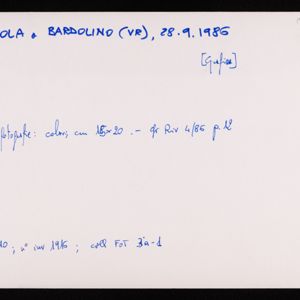 OLA a BARDOLINO (VR), 28.9.1986
fotografie: colori, cm 15x20. - cfr Riv 4/86 p. 12
10 ; n° inv 1916 ; coll FOT 3a-1